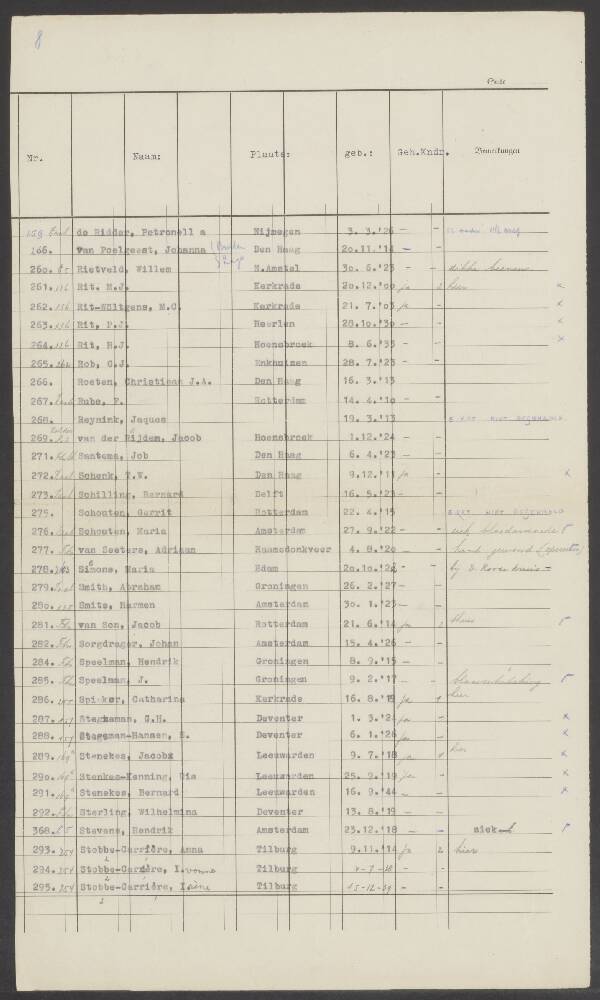 8
Nr. Naam: Plaats: geb.: Geh. Kndr. Bemerkungen
de Ridder, Petronella Nijmegen 3. 3.'26 - -
166. van Poelgeest, Johanna Den Haag 20.11.'14 - -
260. Rietveld, Willem N.Amstel 30. 6.'23 - - dikke beenen
261. 116 Rit. M.J. Kerkrade 20.12.'00 ja 2 hier x
262. 116 Rit-Wöltgens, M.C. Kerkrade 21. 7.'03 ja - x
263. 116 Rit, P.J. Heerlen 28.10.'30 - - x
264. 116 Rit, H.J. Hoensbroek 8. 6.'33 - - x
265. 262 Rob, C.J. Enkhuizen 28. 7.'23 - -
266. Roeten, Christiaan J.A. Den Haag 16. 3.'13
267. Rube, F. Rotterdam 14. 4.'10 - -
268. Reynirk, Jaques 19. 3.'13
269. van der Rijdem, Jacob Hoensbroek 1.12.'24 - -
271. Santema, Job Den Haag 6. 4.'23 - -
272. Schenk, T.W. Den Haag 9.12.'11 ja - x
273. Schilling, Bernard Delft 16. 5.'23 - -
275. Schouten, Gerrit Rotterdam 22. 4.'15
276. Schouten, Maria Amsterdam 27. 9.'22 - - bloedarmoede
277. van Seeters, Adriaan Raamsdonkveer 4. 8.'20 - - hand gewond (operatie)
278. Simons, Maria Edam 20.10.'22 - - by d. Roode Kruis
279. Smith, Abraham Groningen 26. 2.'27 - -
280. Smits, Harmen Amsterdam 30. 1.'23 - -
281. van Son, Jacob Rotterdam 21. 6.'14 ja thuis
282. Sorgdrager, Johan Amsterdam 15. 4.'26 - -
284. Speelman, Hendrik Groningen 8. 9.'15 - -
285. Speelman, J. Groningen 9. 2.'17 - -
286. Spieker, Catharina Kerkrade 16. 8.'19 ja 1 hier
287. 157 Stegeman, G.H. Deventer 1. 3.'24 ja - x
288. 157 Stegeman-Hansen, E. Deventer 6. 1.'26 ja - x
289. 169 Stenekes, Jacobs Leeuwarden 9. 7.'18 ja 1 hier x
290. 169 Stenkes-Kenning, Leeuwarden 25. 9.'19 ja - x
291. 169 Stenekes, Bernard Leeuwarden 16. 9.'44 - x
292. Sterling, Wilhelmina Deventer 13. 8.'19 - -
368. Stevens, Hendrik Amsterdam 23.12.'18 - - ziek
293. 254 Stobbe-Carrière, Anna Tilburg 9.11.'14 ja 2 hier
294. 254 Stobbe-Carrière, Yvonne Tilburg - -
295. 254 Stobbe-Carrière, Irène Tilburg 15-12-39 - -